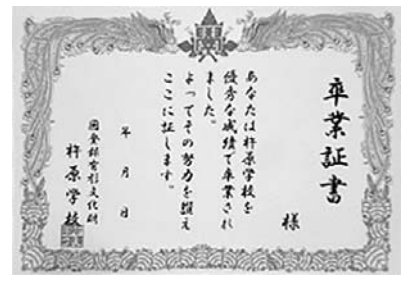 卒業証書
様
あなたは杵原学校を
優秀な成績で卒業され
ました。
よってその努力を讃え
ここに証します。
年 月 日
国登録有形文化財
杵原学校